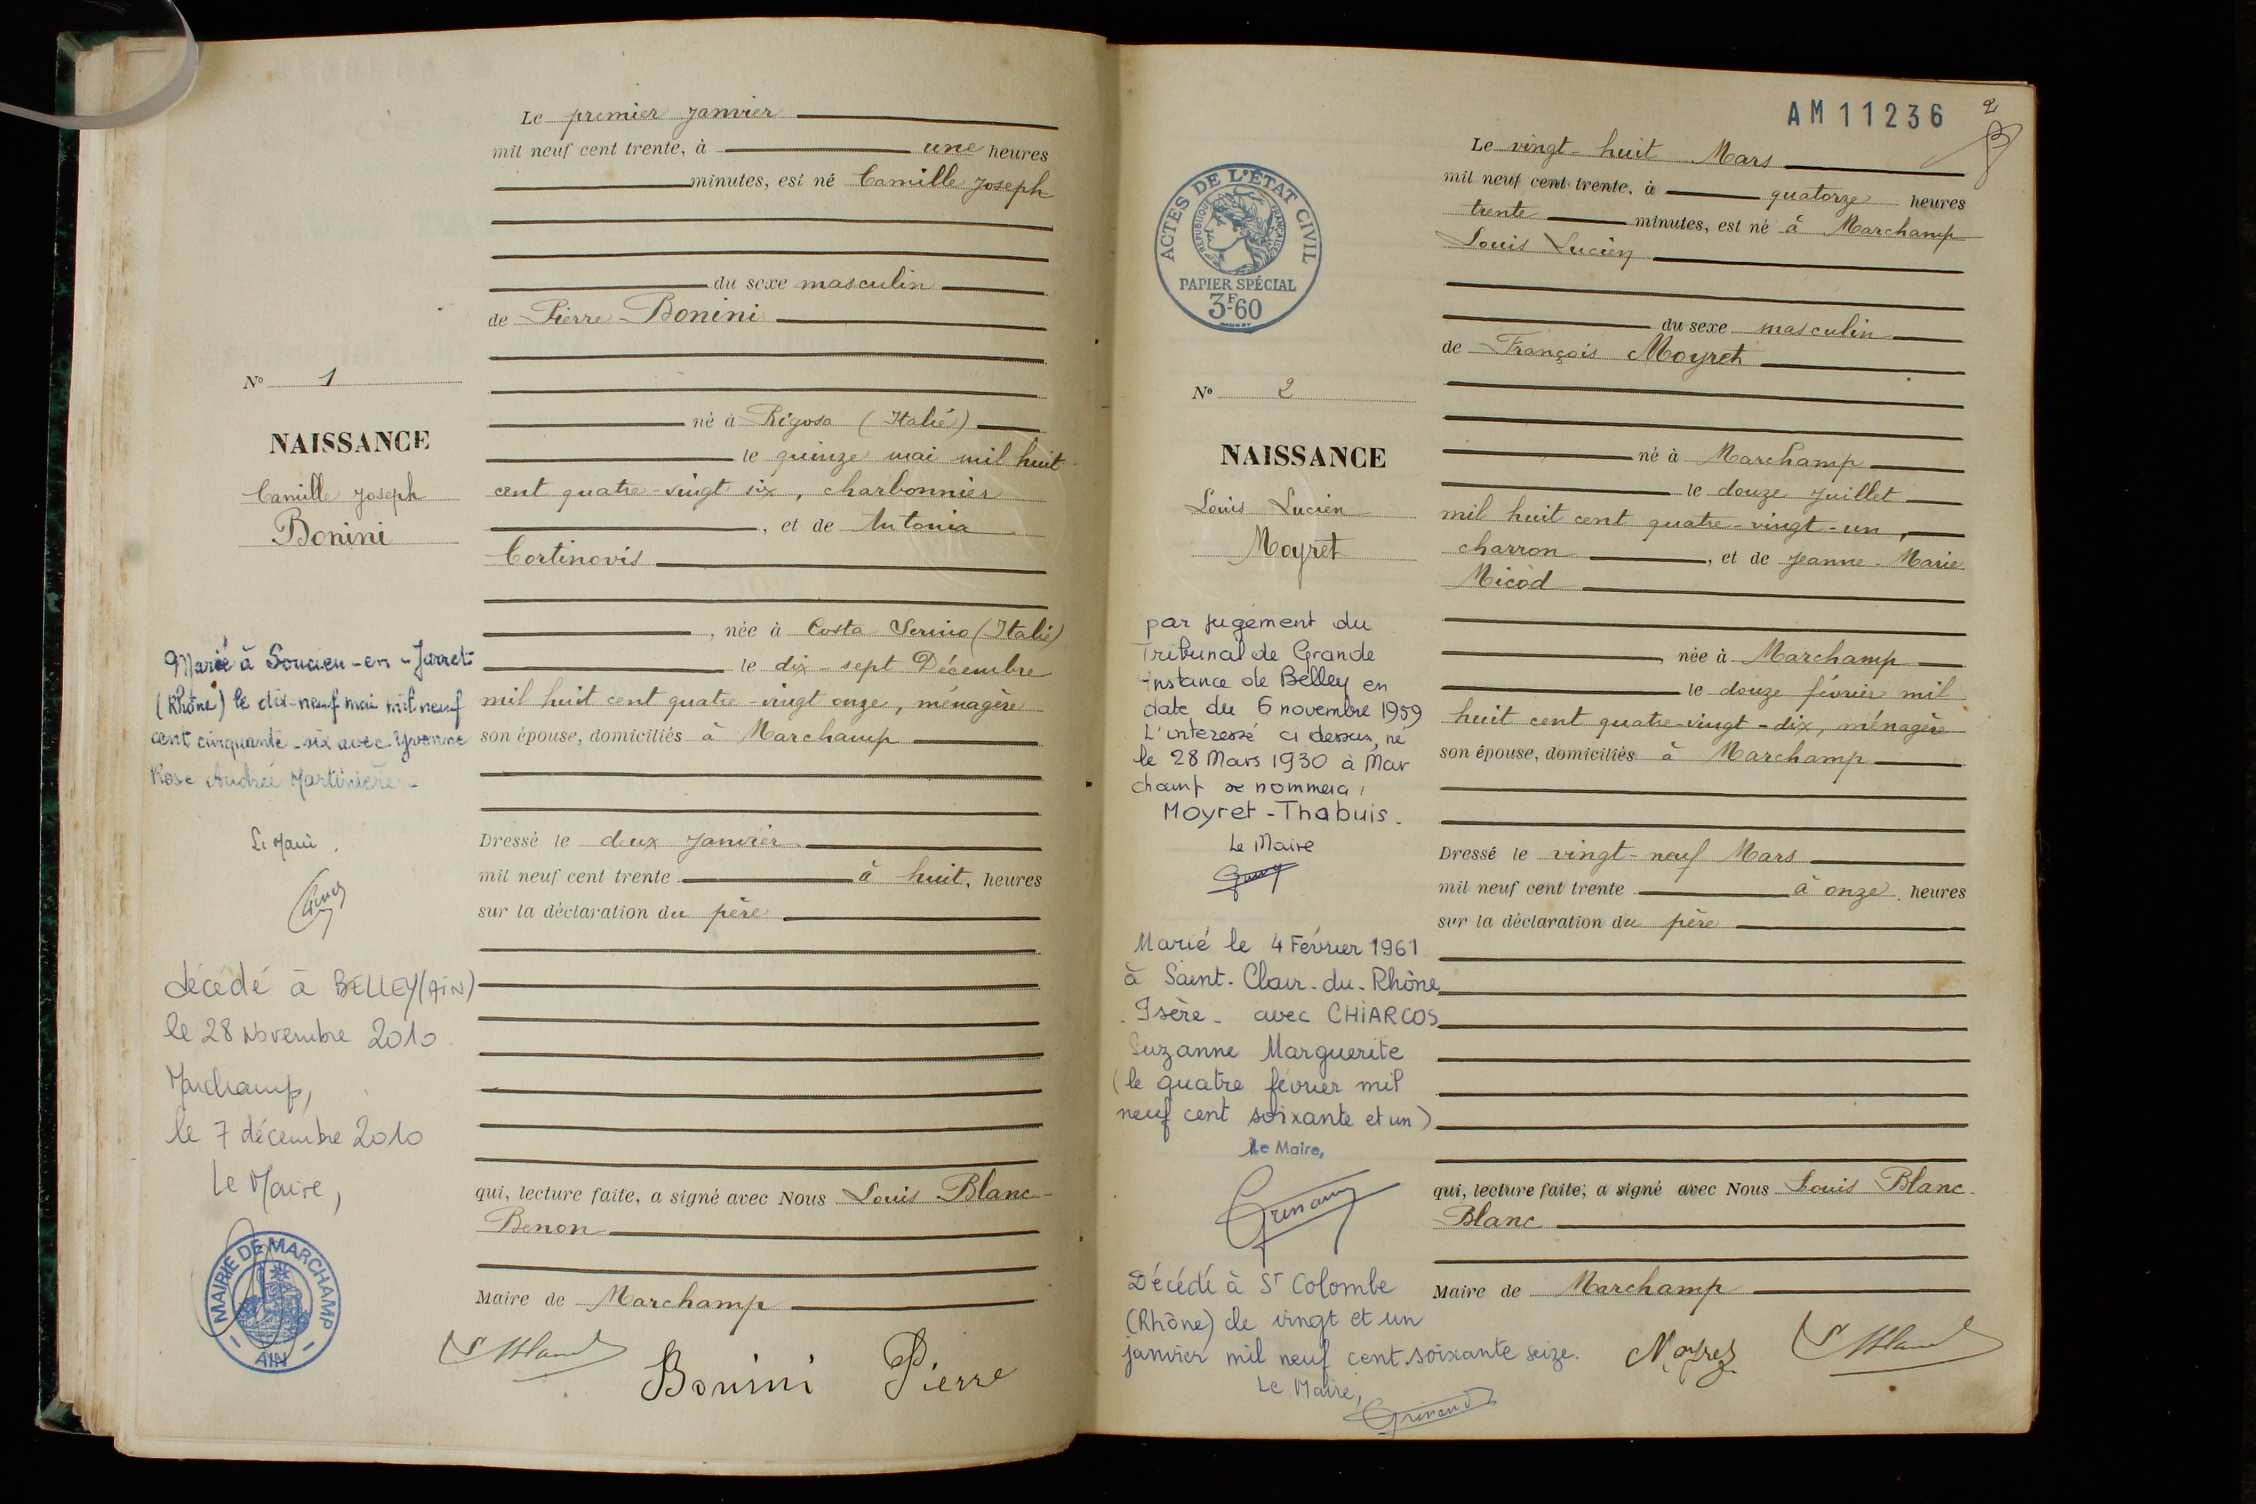 Le premier Janvier
mil neuf cent trente, à une heures
minutes, est né Camille Joseph
du sexe masculin
de Pierre Bonini
né à Rigosa (Italie)
le quinze mai mil huit
cent quatre-vingt six, charbonnier
, et de Antonia
Cortinovis
, née à Costa Serino (Italie)
le dix-sept Décembre
mil huit cent quatre-vingt onze, ménagère
son épouse, domiciliés à Marchamp
Dressé le deux Janvier
mil neuf cent trente à huit, heures
sur la déclaration du père
qui, lecture faite, a signé avec Nous Louis Blanc-
Benon
Maire de Marchamp
Bonini Pierre
No 1
NAISSANCE
Camille Joseph
Bonini
Marié à Soucieu-en-Jarret
(Rhône) le dix-neuf mai mil neuf
cent cinquante-six avec Yvonne
Rose Andrée Martinière.
Le Maire.
décédé à BELLEY (AIN)
le 28 Novembre 2010
Marchamp,
le 7 décembre 2010
Le Maire,
MAIRIE DE MARCHAMP
- AIN -
AM 11236
2
ACTES DE L'ÉTAT CIVIL
RÉPUBLIQUE FRANÇAISE
PAPIER SPÉCIAL
3F60
No 2
NAISSANCE
Louis Lucien
Moyret
par jugement du
Tribunal de Grande
Instance de Belley en
date du 6 novembre 1959
L'intéressé ci dessus, né
le 28 Mars 1930 à Mar
champ se nommera :
Moyret-Thabuis.
Le Maire
Marié le 4 Février 1961
à Saint-Clair-du-Rhône
-Isère- avec CHIARCOS
Suzanne Marguerite
(le quatre février mil
neuf cent soixante et un)
Le Maire,
Grinand
Décédé à St Colombe
(Rhône) le vingt et un
janvier mil neuf cent soixante seize.
Le Maire,
Grinand
Le vingt-huit Mars
mil neuf cent trente, à quatorze heures
trente minutes, est né à Marchamp
Louis Lucien
du sexe masculin
de François Moyret
né à Marchamp
le douze Juillet
mil huit cent quatre-vingt-un,
charron, et de Jeanne-Marie
Micod
née à Marchamp
le douze février mil
huit cent quatre-vingt-dix, ménagère
son épouse, domiciliés à Marchamp
Dressé le vingt-neuf Mars
mil neuf cent trente à onze heures
sur la déclaration du père
qui, lecture faite, a signé avec Nous Louis Blanc-
Blanc
Maire de Marchamp
Moyret